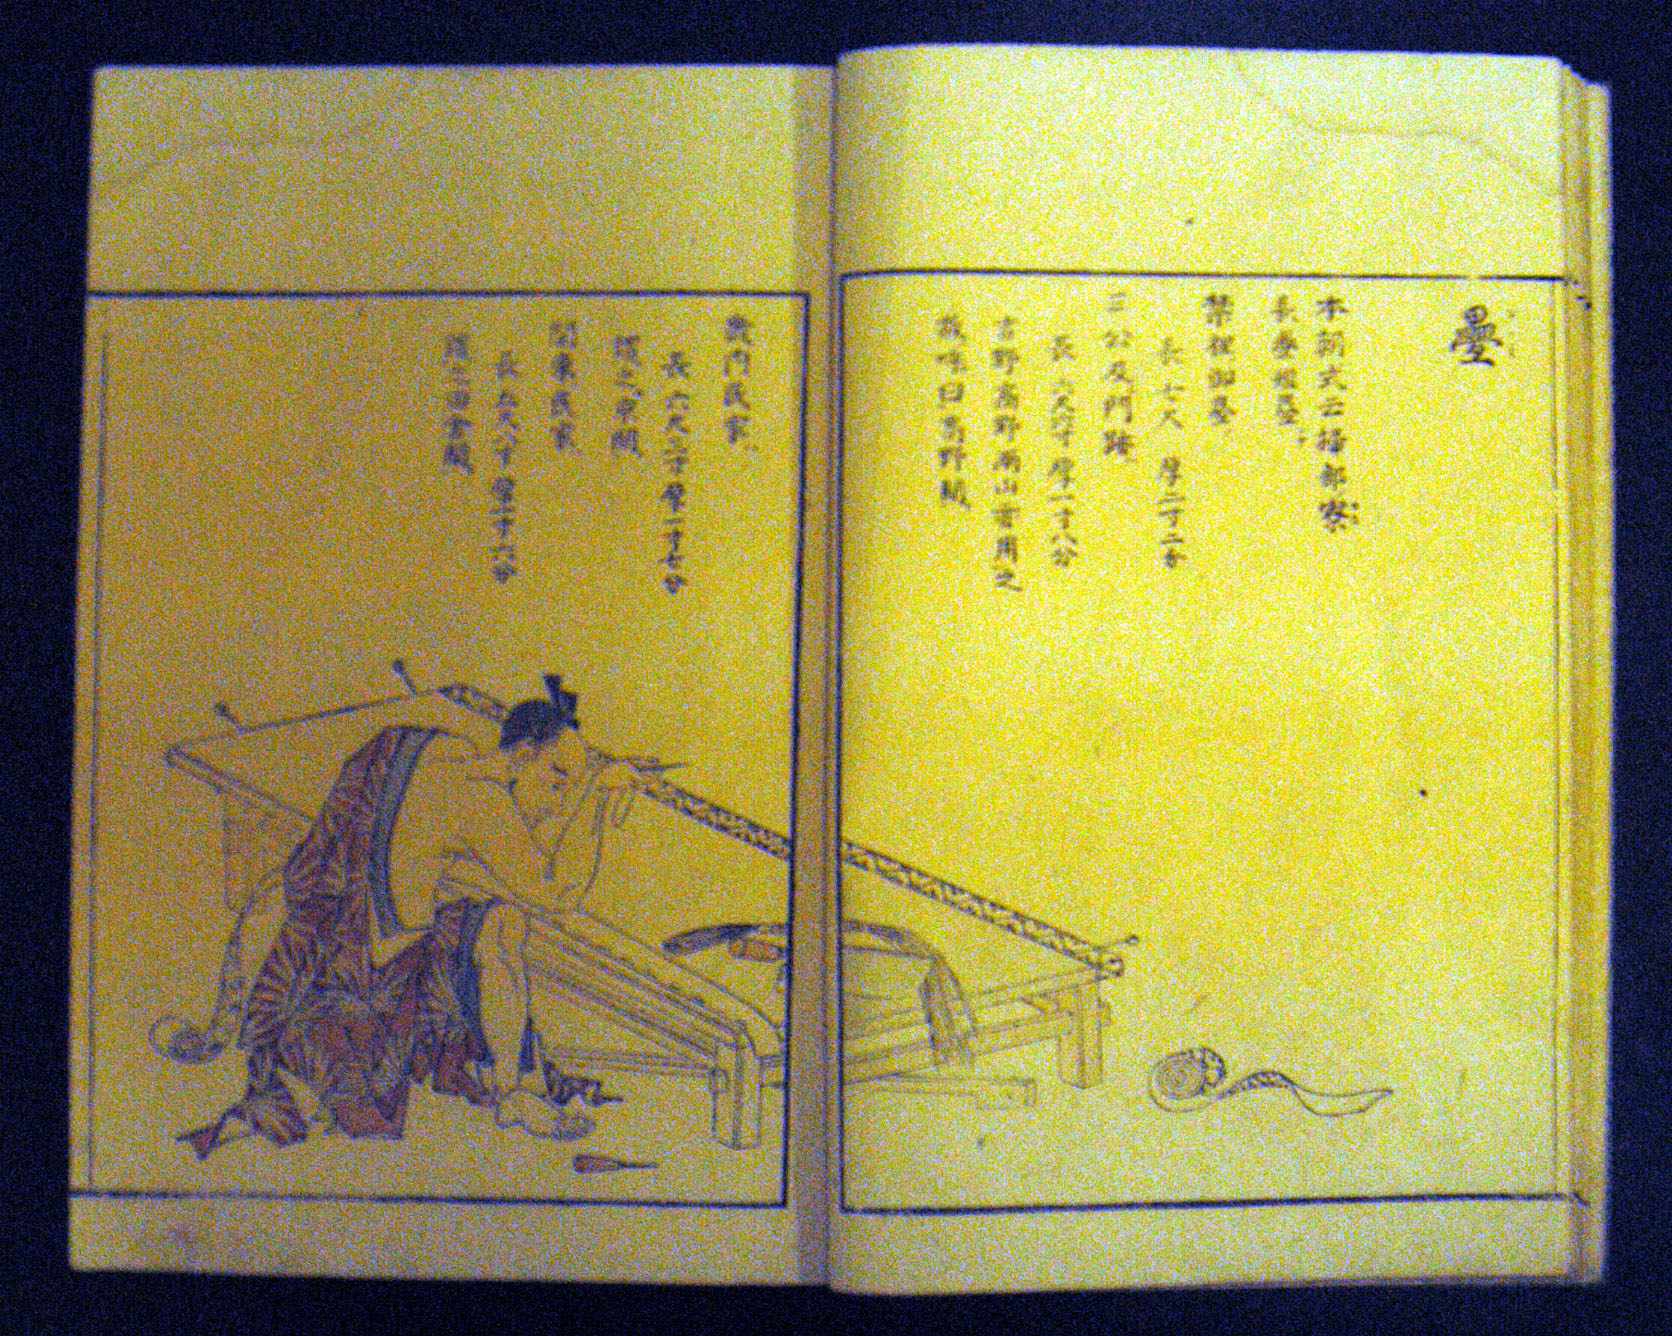 疊
本朝式云掃部寮
長疊短疊
禁裡御疊
長七尺 厚二寸二分
三公及門跡
長六尺 寸厚一寸八分
吉野高野兩山皆用之
呼曰高野間
門民家
長六尺 寸厚一寸七分
謂之京間
関東民家
長五尺八寸厚一寸六分
謂之田舎間